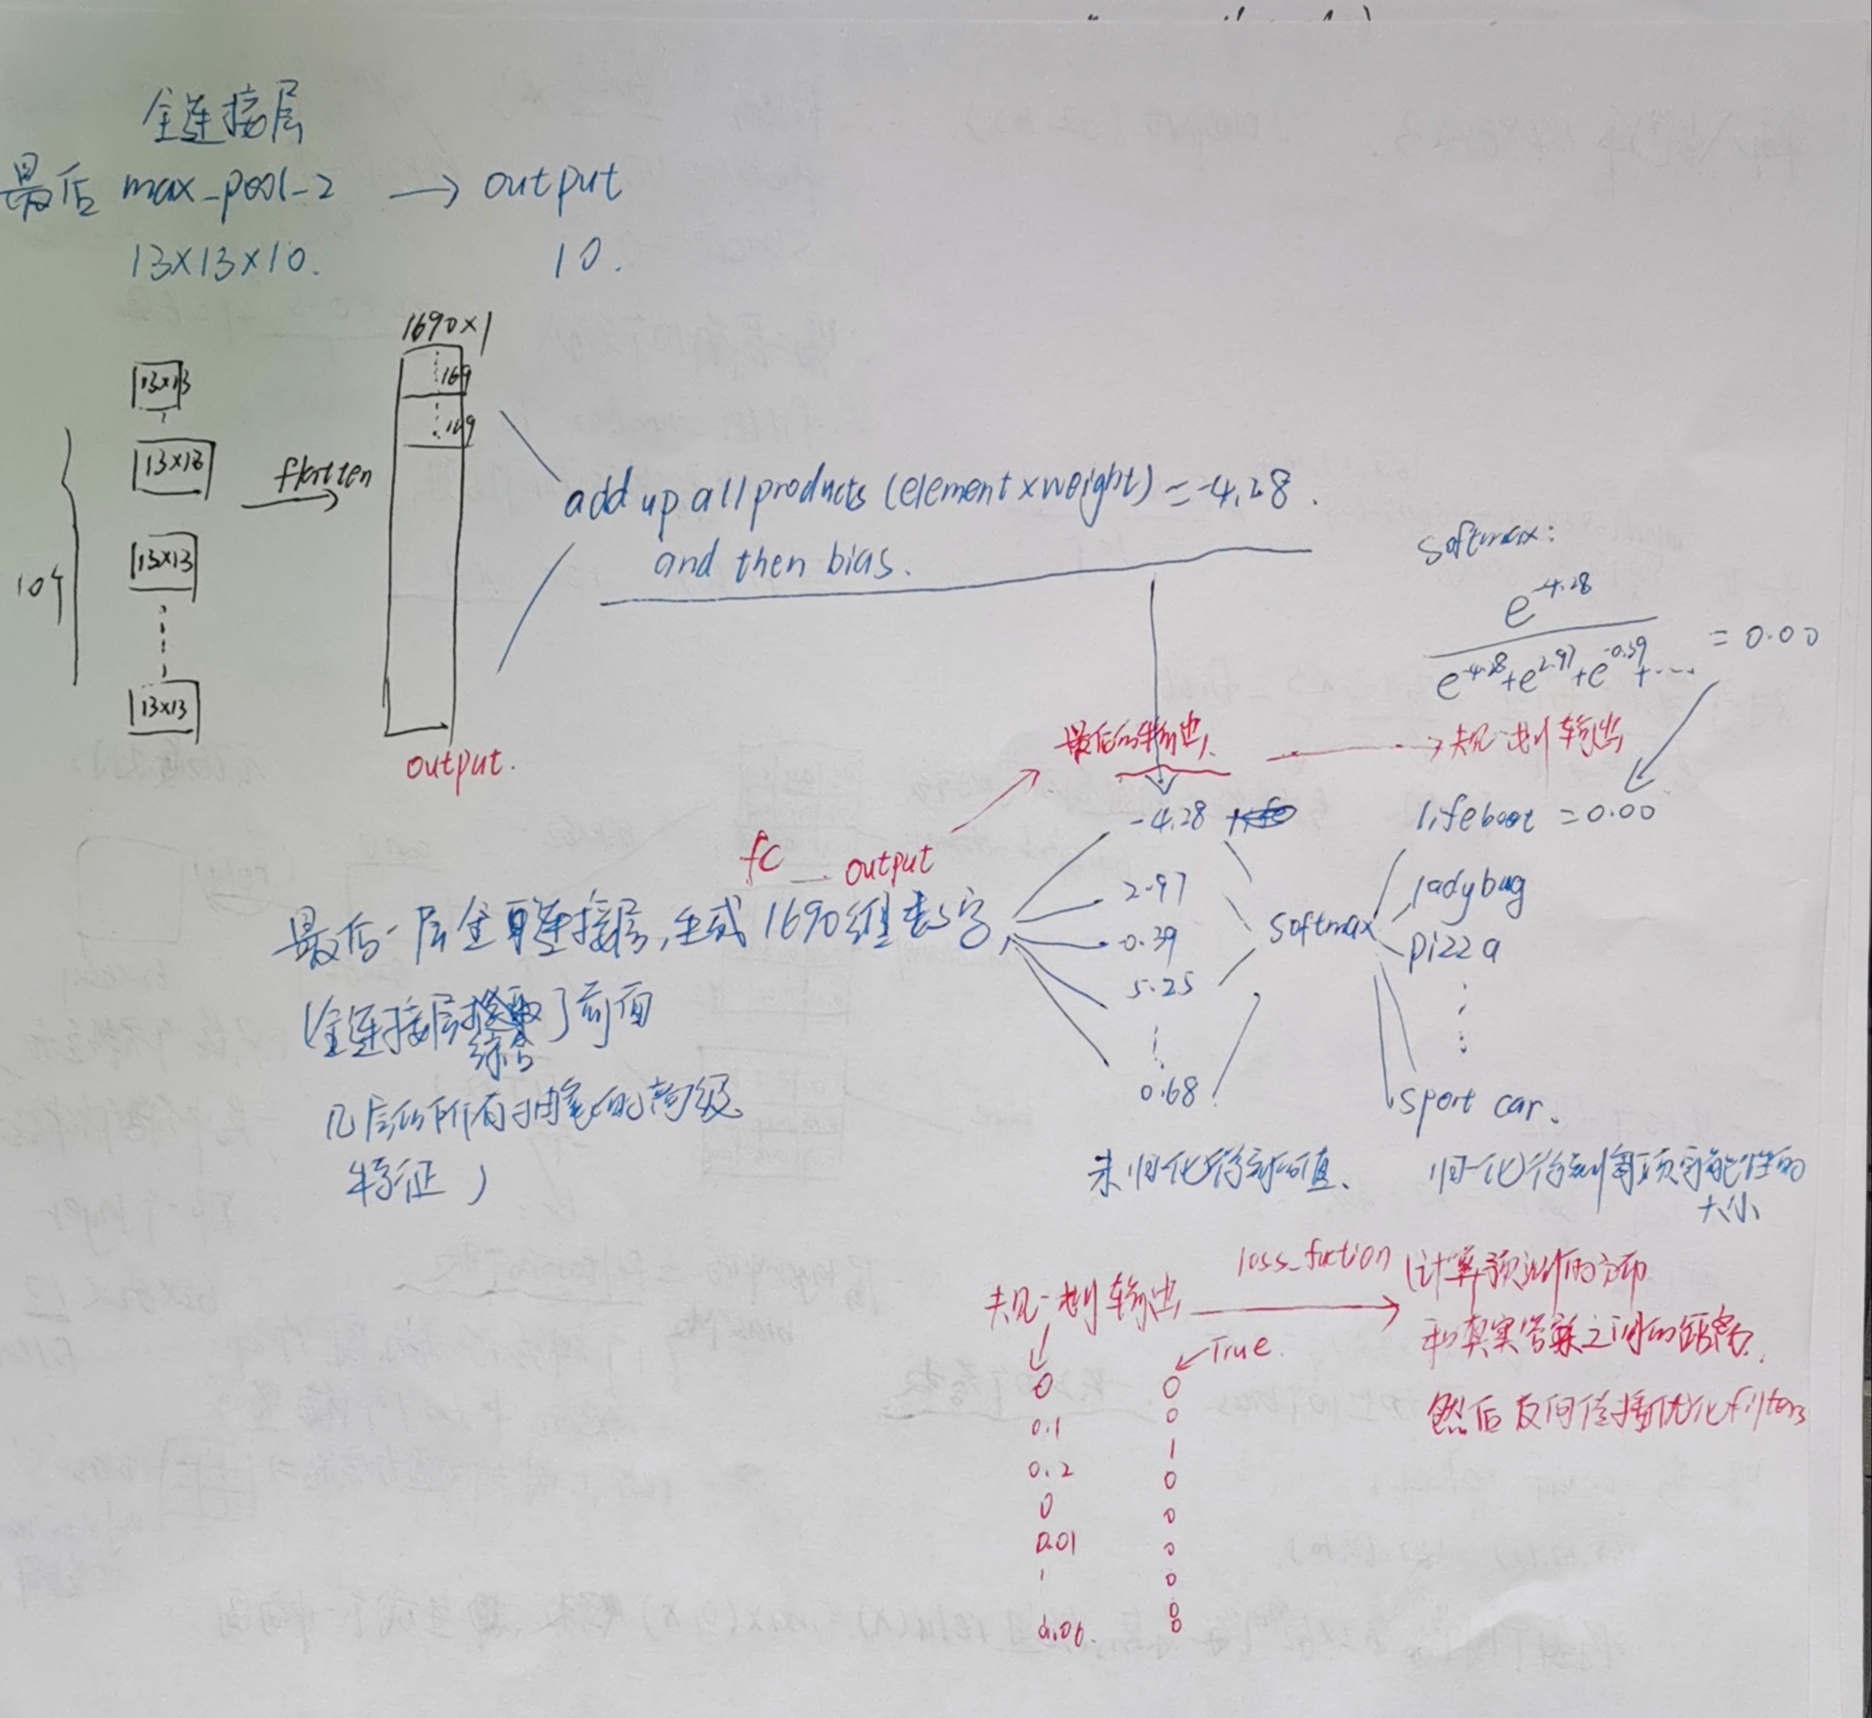 全连接层
最后 max_pool_2 → output
13×13×10. 10.
1690×1
13×13
169
169
13×13
flatten
13×13
10个
13×13
output.
add up all products (element × weight) = -4.28.
and then bias.
softmax:
e^-4.28
e^-4.28+e^2.97+e^-0.39+.... = 0.00
最后的输出 → 规一划输出
fc_output
-4.28
2.97
-0.39
5.25
0.68
softmax
lifeboat = 0.00
ladybug
pizza
sport car.
最后一层全连接层,生成1690维数字
(全连接层综合了前面
几层的所有抽象的高级
特征)
未归一化得到的值、
归一化得到每项可能性的
大小
规一划输出
loss_fuction
True.
计算预测的分布
和真实答案之间的距离.
然后反向传播优化filters
0 0
0.1 0
0.2 1
0 0
0.01 0
0
0
0
0.06. 0